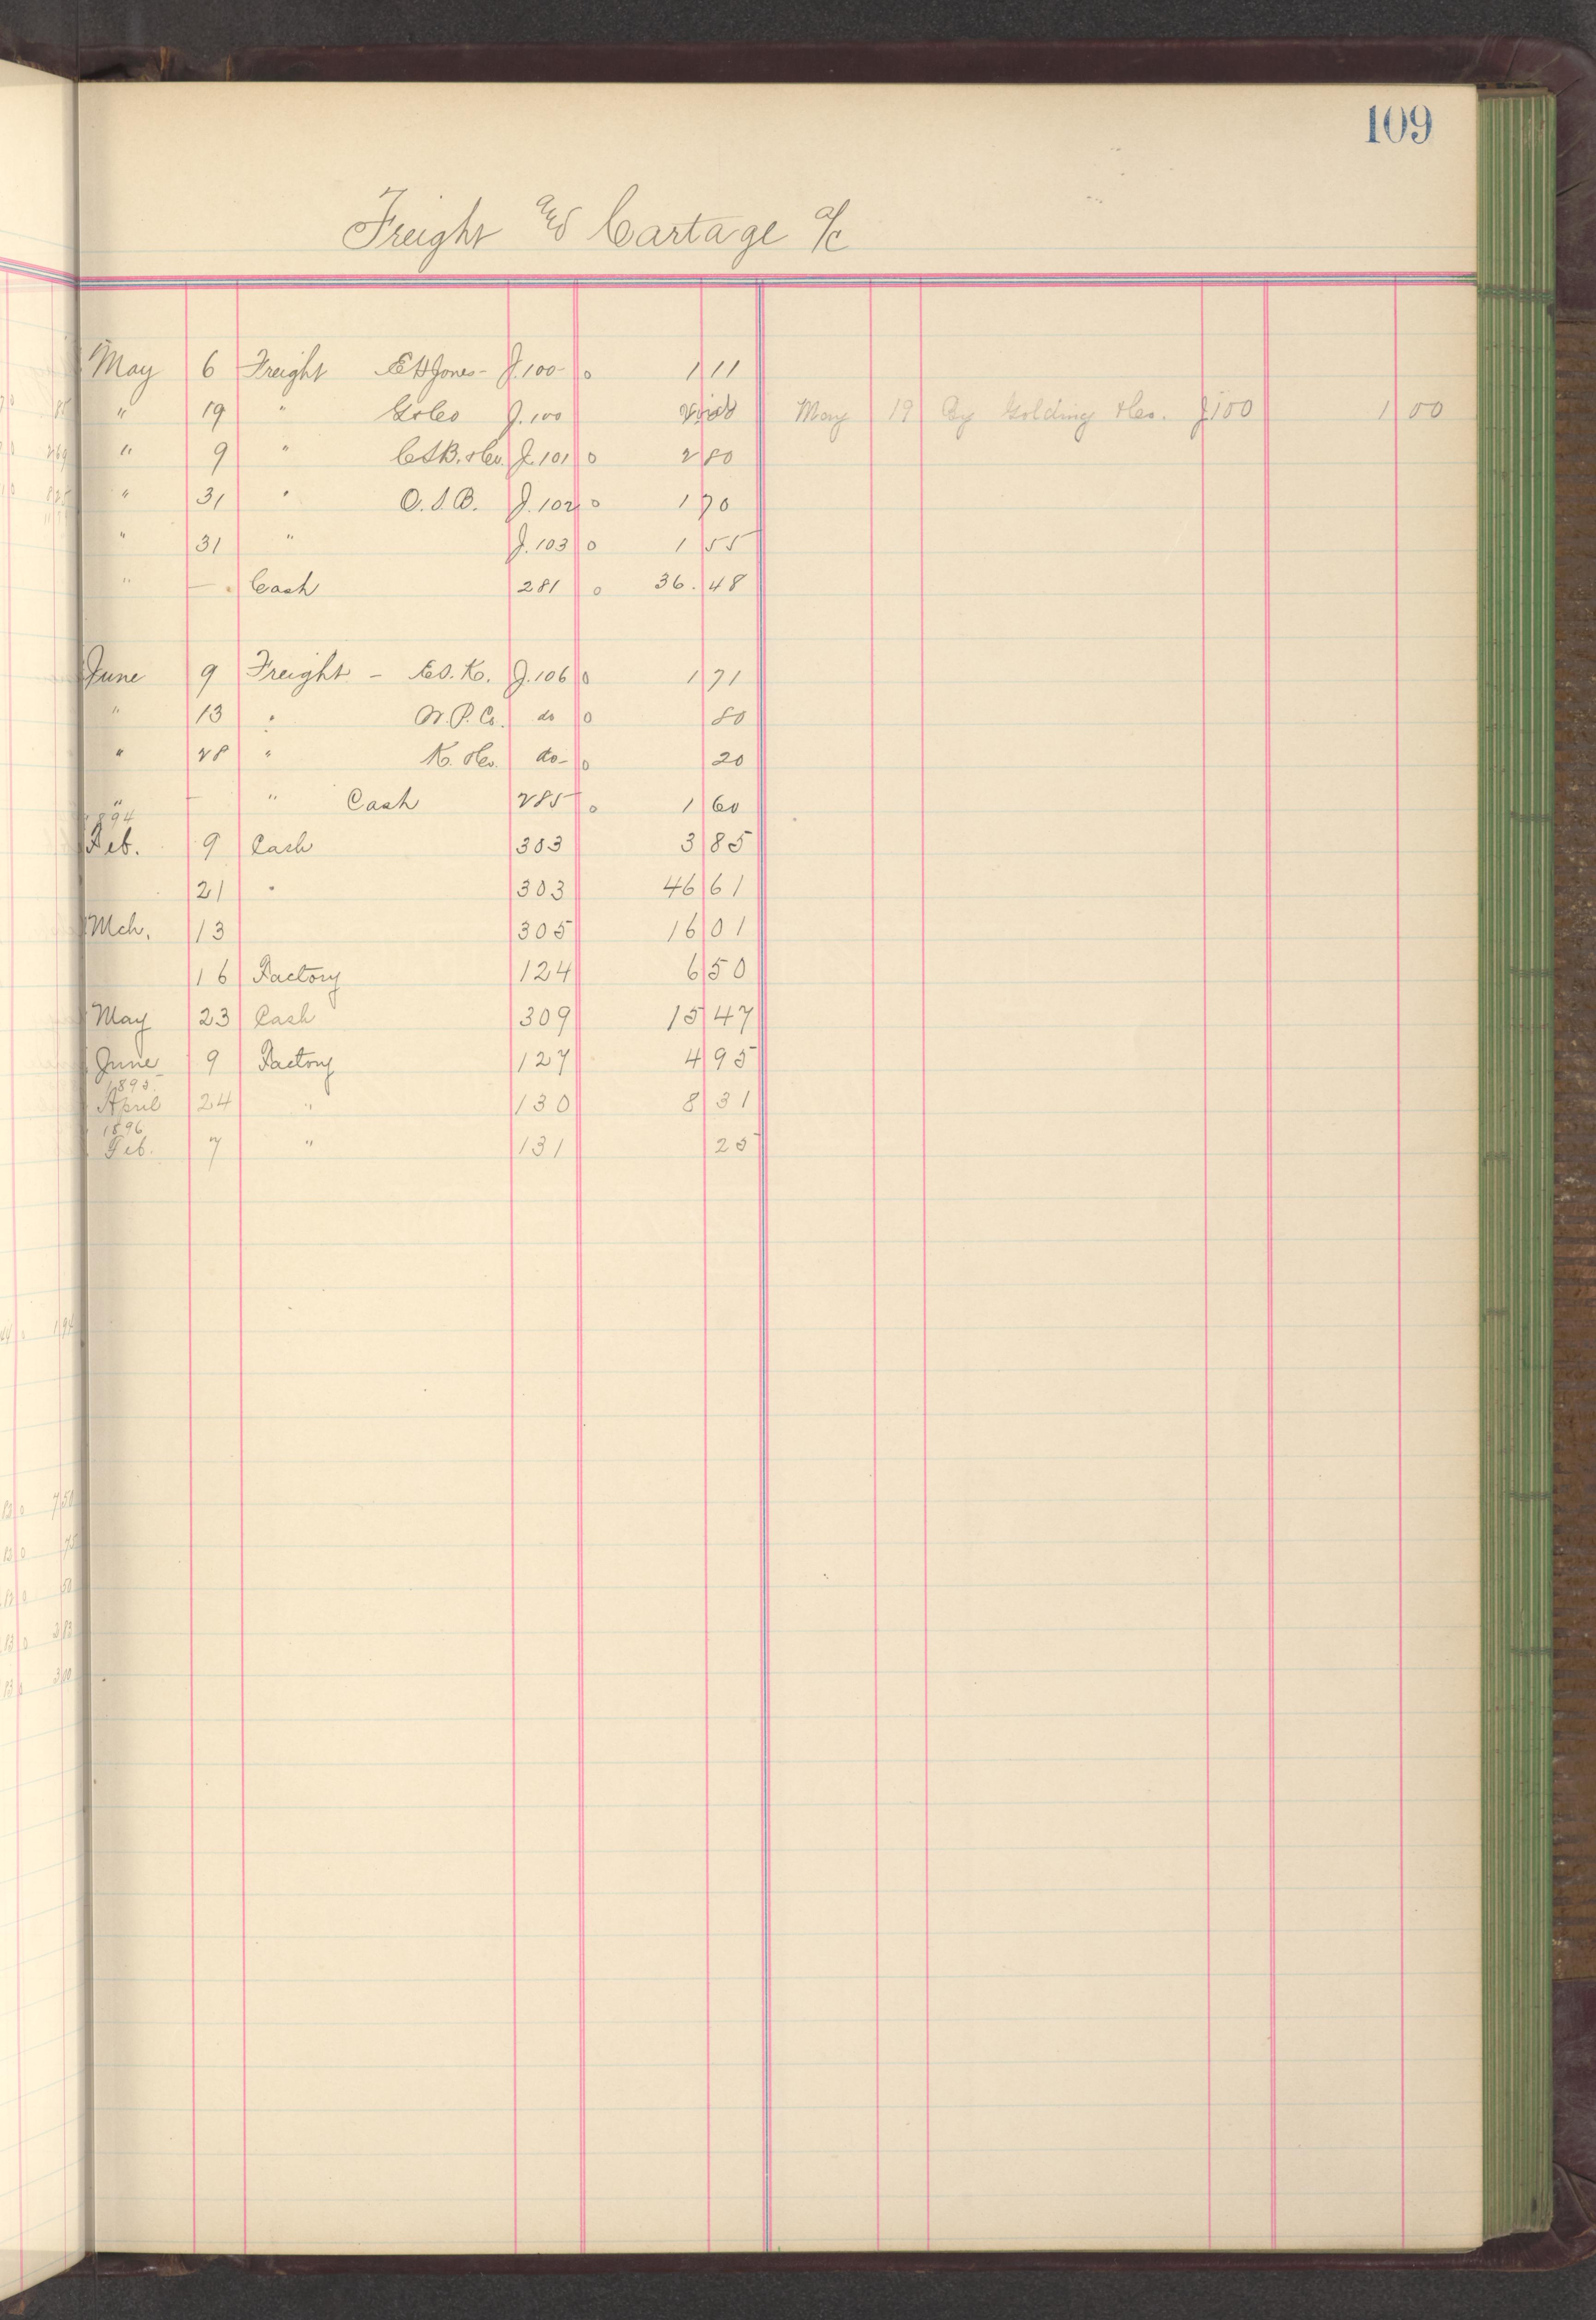 109
Freight and Cartage a/c
May 6 Freight E H Jones - J. 100 - o 1 11
" 19 " G & Co J. 100 void May 19 By Golding & Co. J 100 1 00
" 9 " C S B. & Co. J. 101 o 2 80
" 31 " O. S. B. J. 102 o 1 70
" 31 " J. 103 o 1 55
" — Cash 281 o 36. 48
June 9 Freight - E S. K. J. 106 o 1 71
" 13 " N. P. Co. do o 80
" 28 " K. & Co. do - o 20
" — " Cash 285 o 1 60
1894
Feb. 9 Cash 303 3 85
21 " 303 46 61
Mch. 13 305 16 01
16 Factory 124 6 50
May 23 Cash 309 15 47
June 9 Factory 127 4 95
1895
April 24 " 130 8 31
1896
Feb. 7 " 131 25